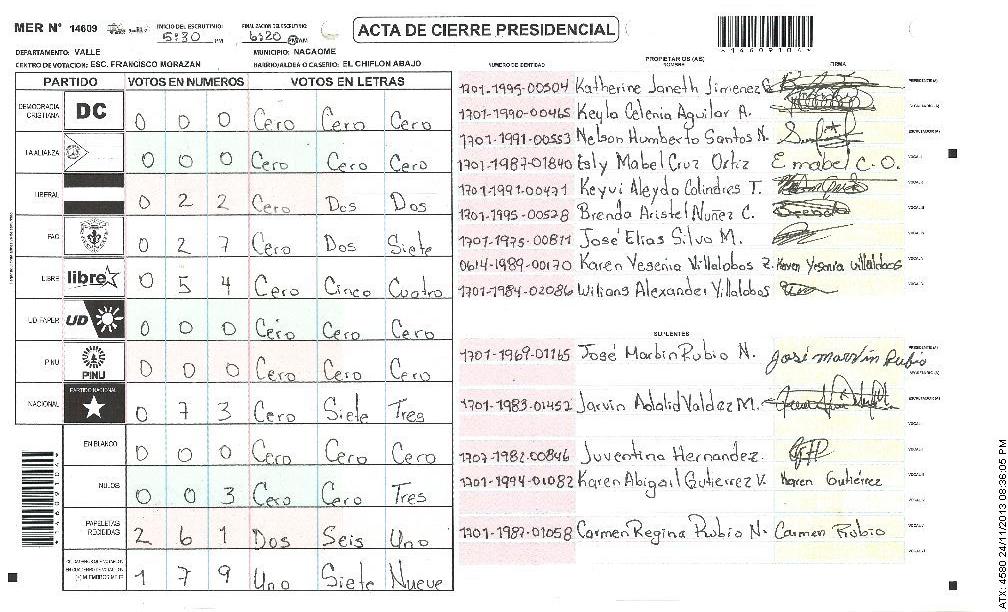 MER Nº 14609
INICIO DEL ESCRUTINIO: 5:30 PM
FINALIZACION DEL ESCRUTINIO: 6:20 PM AM
ACTA DE CIERRE PRESIDENCIAL
*4609104*
DEPARTAMENTO: VALLE MUNICIPIO: NACAOME
CENTRO DE VOTACION: ESC. FRANCISCO MORAZAN BARRIO/ALDEA O CASERIO: EL CHIFLON ABAJO
PARTIDO VOTOS EN NUMEROS VOTOS EN LETRAS
DEMOCRACIA CRISTIANA DC 0 0 0 Cero Cero Cero
LA ALIANZA 0 0 0 Cero Cero Cero
LIBERAL 0 2 2 Cero Dos Dos
PAC 0 2 7 Cero Dos Siete
LIBRE libre 0 5 4 Cero Cinco Cuatro
UD FAPER UD 0 0 0 Cero Cero Cero
PINU PINU 0 0 0 Cero Cero Cero
NACIONAL PARTIDO NACIONAL 0 7 3 Cero Siete Tres
EN BLANCO 0 0 0 Cero Cero Cero
NULOS 0 0 3 Cero Cero Tres
PAPELETAS RECIBIDAS 2 6 1 Dos Seis Uno
1 7 9 Uno Siete Nueve
PROPIETARIOS (AS)
NUMERO DE IDENTIDAD NOMBRE FIRMA
1701-1995-00504 Katherine Janeth Jimenez G
1701-1990-00465 Keyla Celenia Aguilar A.
1701-1991-00553 Nelson Humberto Santos N.
1701-1987-01840 Esly Mabel Cruz Ortiz Emabel C.O.
1701-1991-00471 Keyvi Aleyda Colindres T.
1701-1995-00528 Brenda Aristel Nuñez C. Brenda
1701-1975-00811 José Elias Silva M.
0614-1989-00170 Karen Yesenia Villalobos Z. Karen Yesenia Villalobos
1701-1984-02086 Wilians Alexander Villalobos
SUPLENTES
1701-1969-01165 José Marbin Rubio N. José Marvin Rubio
1701-1983-01452 Jarvin Adalid Valdez M.
1707-1982-00846 Juventina Hernandez.
1701-1994-01082 Karen Abigail Gutierrez V. Karen Gutiérrez
1701-1987-01058 Carmen Regina Rubio N. Carmen Rubio
ATX: 4580 24/11/2013 08:36:05 PM